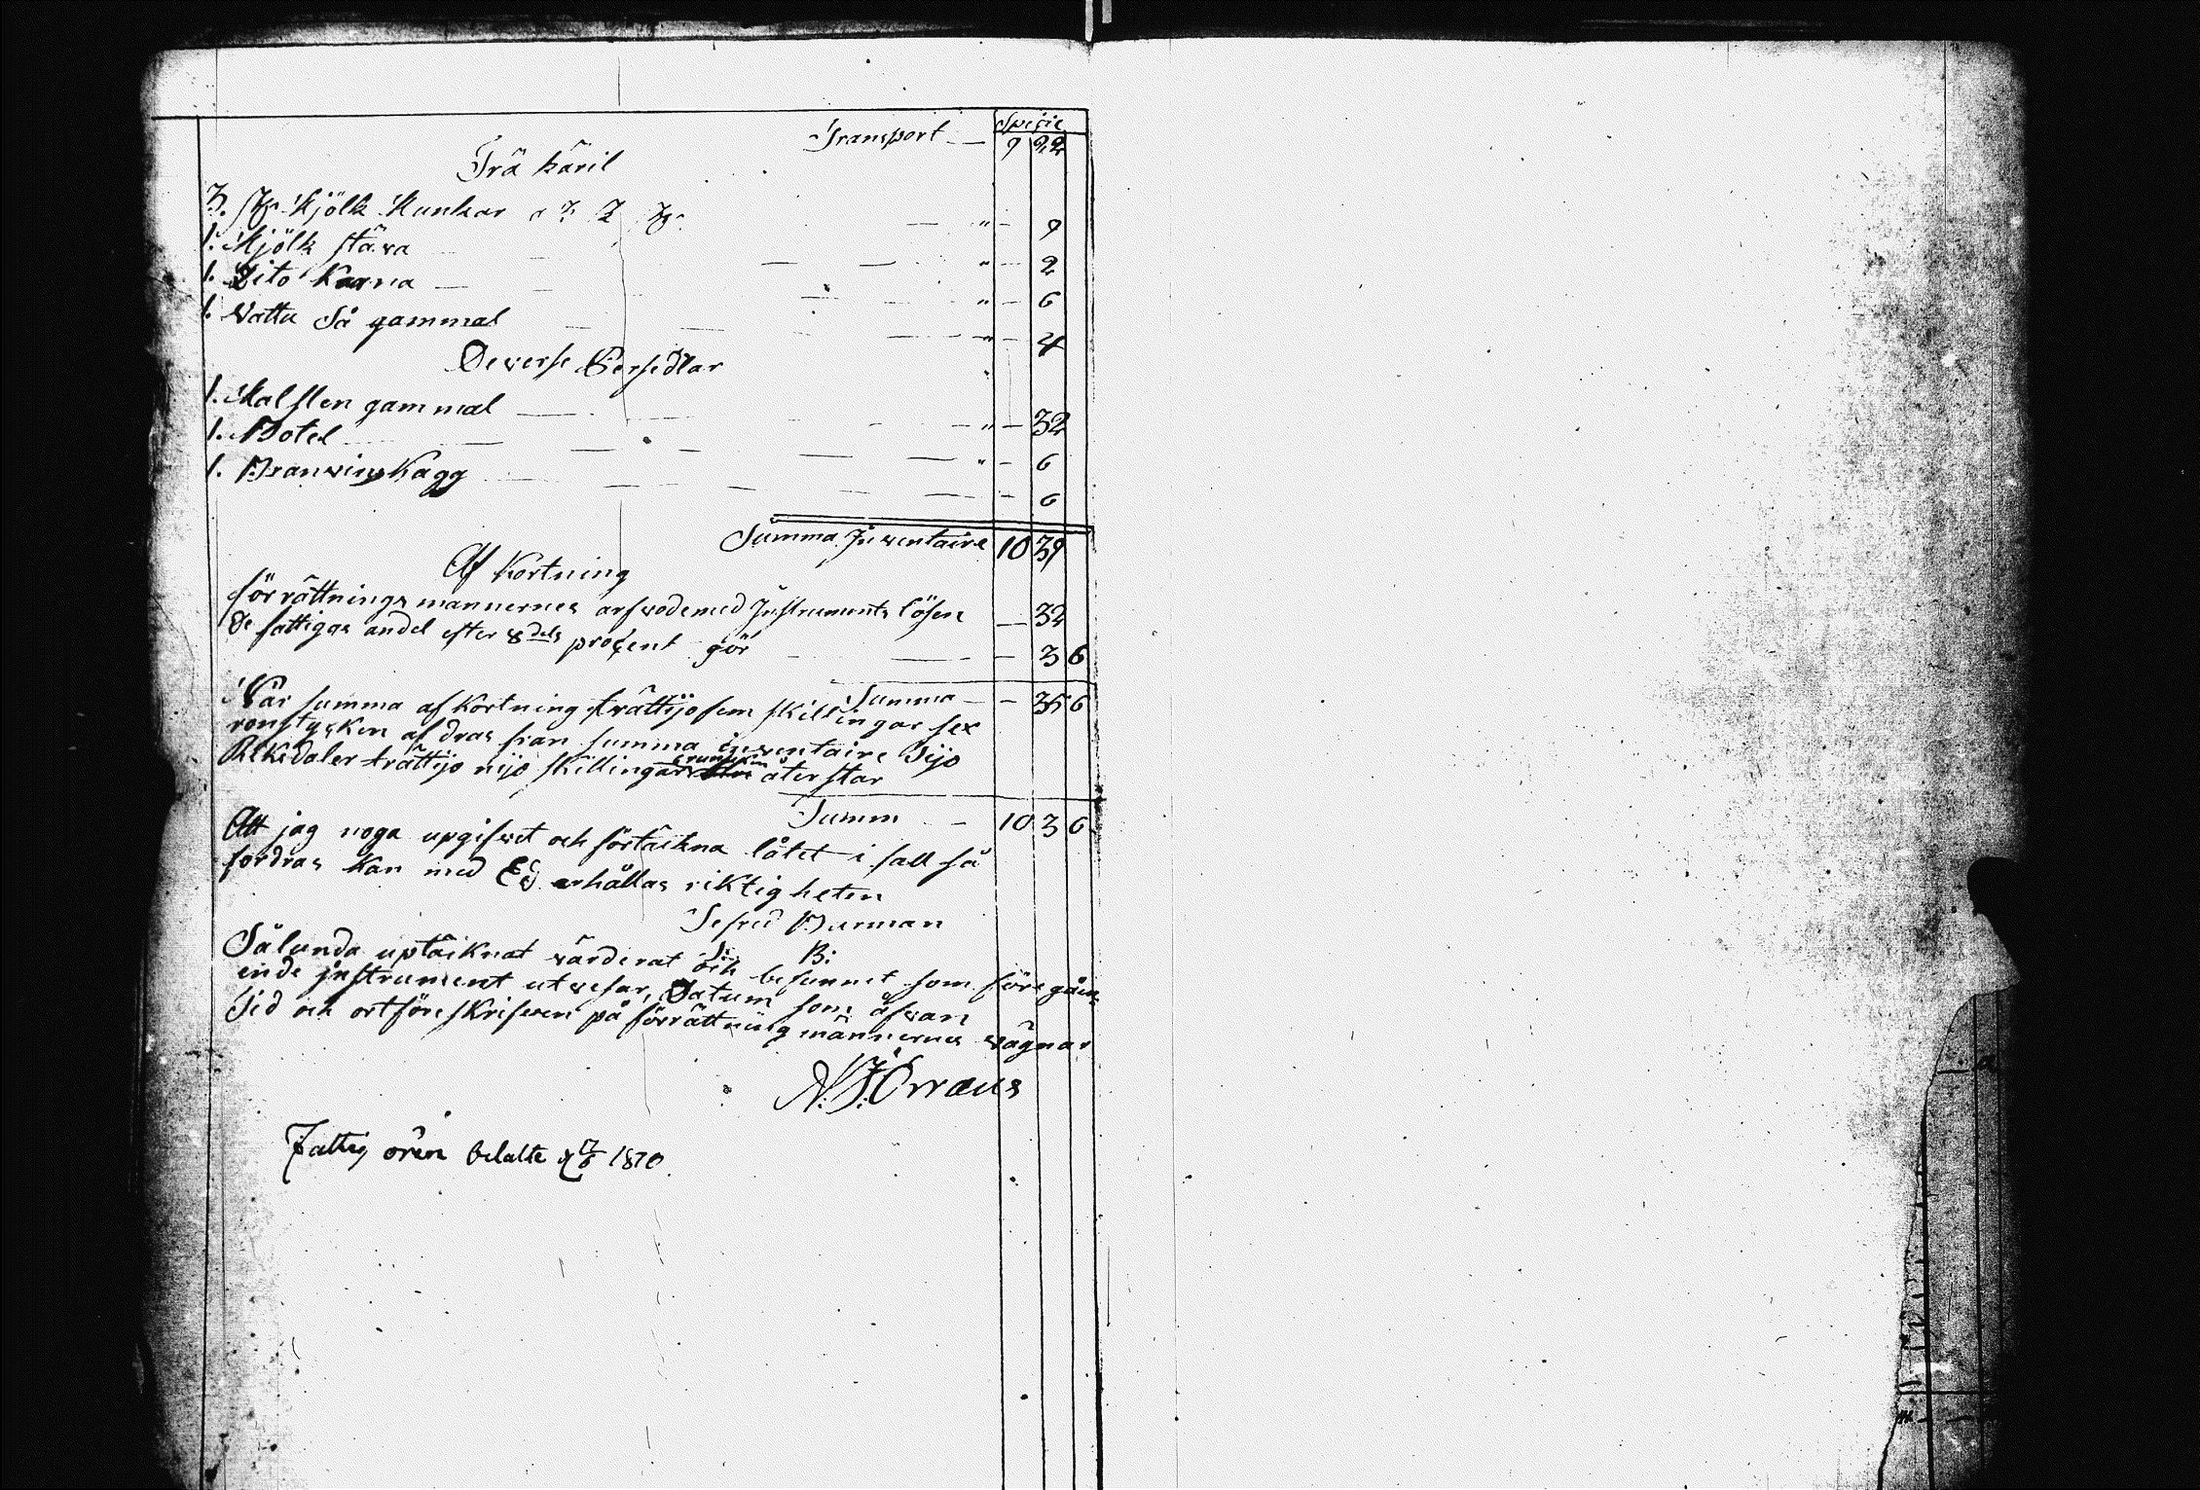 Specie
Transport 9 22
Trä käril
3. st Mjölk Bunkar a 3 st 9
1. Mjölk stäva " - 2
1. Dito Karna " - 6
1. Vattu Så gammal " - 4
Deverse Persedlar
1. Malsten gammal " - 32
1. Botel " - 6
1. Branvins Kagg - 6
Summa Inventaire 10 39
Af Kortning
förrättnings mannernes arfvode med Instruments lösen — 32
De fattigas andel efter 8dels procent gör - 3 6
Summa - 35 6
När summa af kortning trättijo fem skillingar sex
ronstycken af dras fran summa inventaire Tijo
Riksdaler trättijo nijo skillingar återstar
Summ 10 3 6
Att jag noga upgifvet och förtäckna låtet i fall så
fordras kan med Ed erhållas riktigheten
Sefred Burman
S: B:
Sålunda uptäcknat värderat och befunnet som föregåen
ende instrument utvesar, Datum som åfvan
Tid och ort föreskrifven på förrättning männernes vägnar
N. J. Orraus
Fattig ören betalte 1810